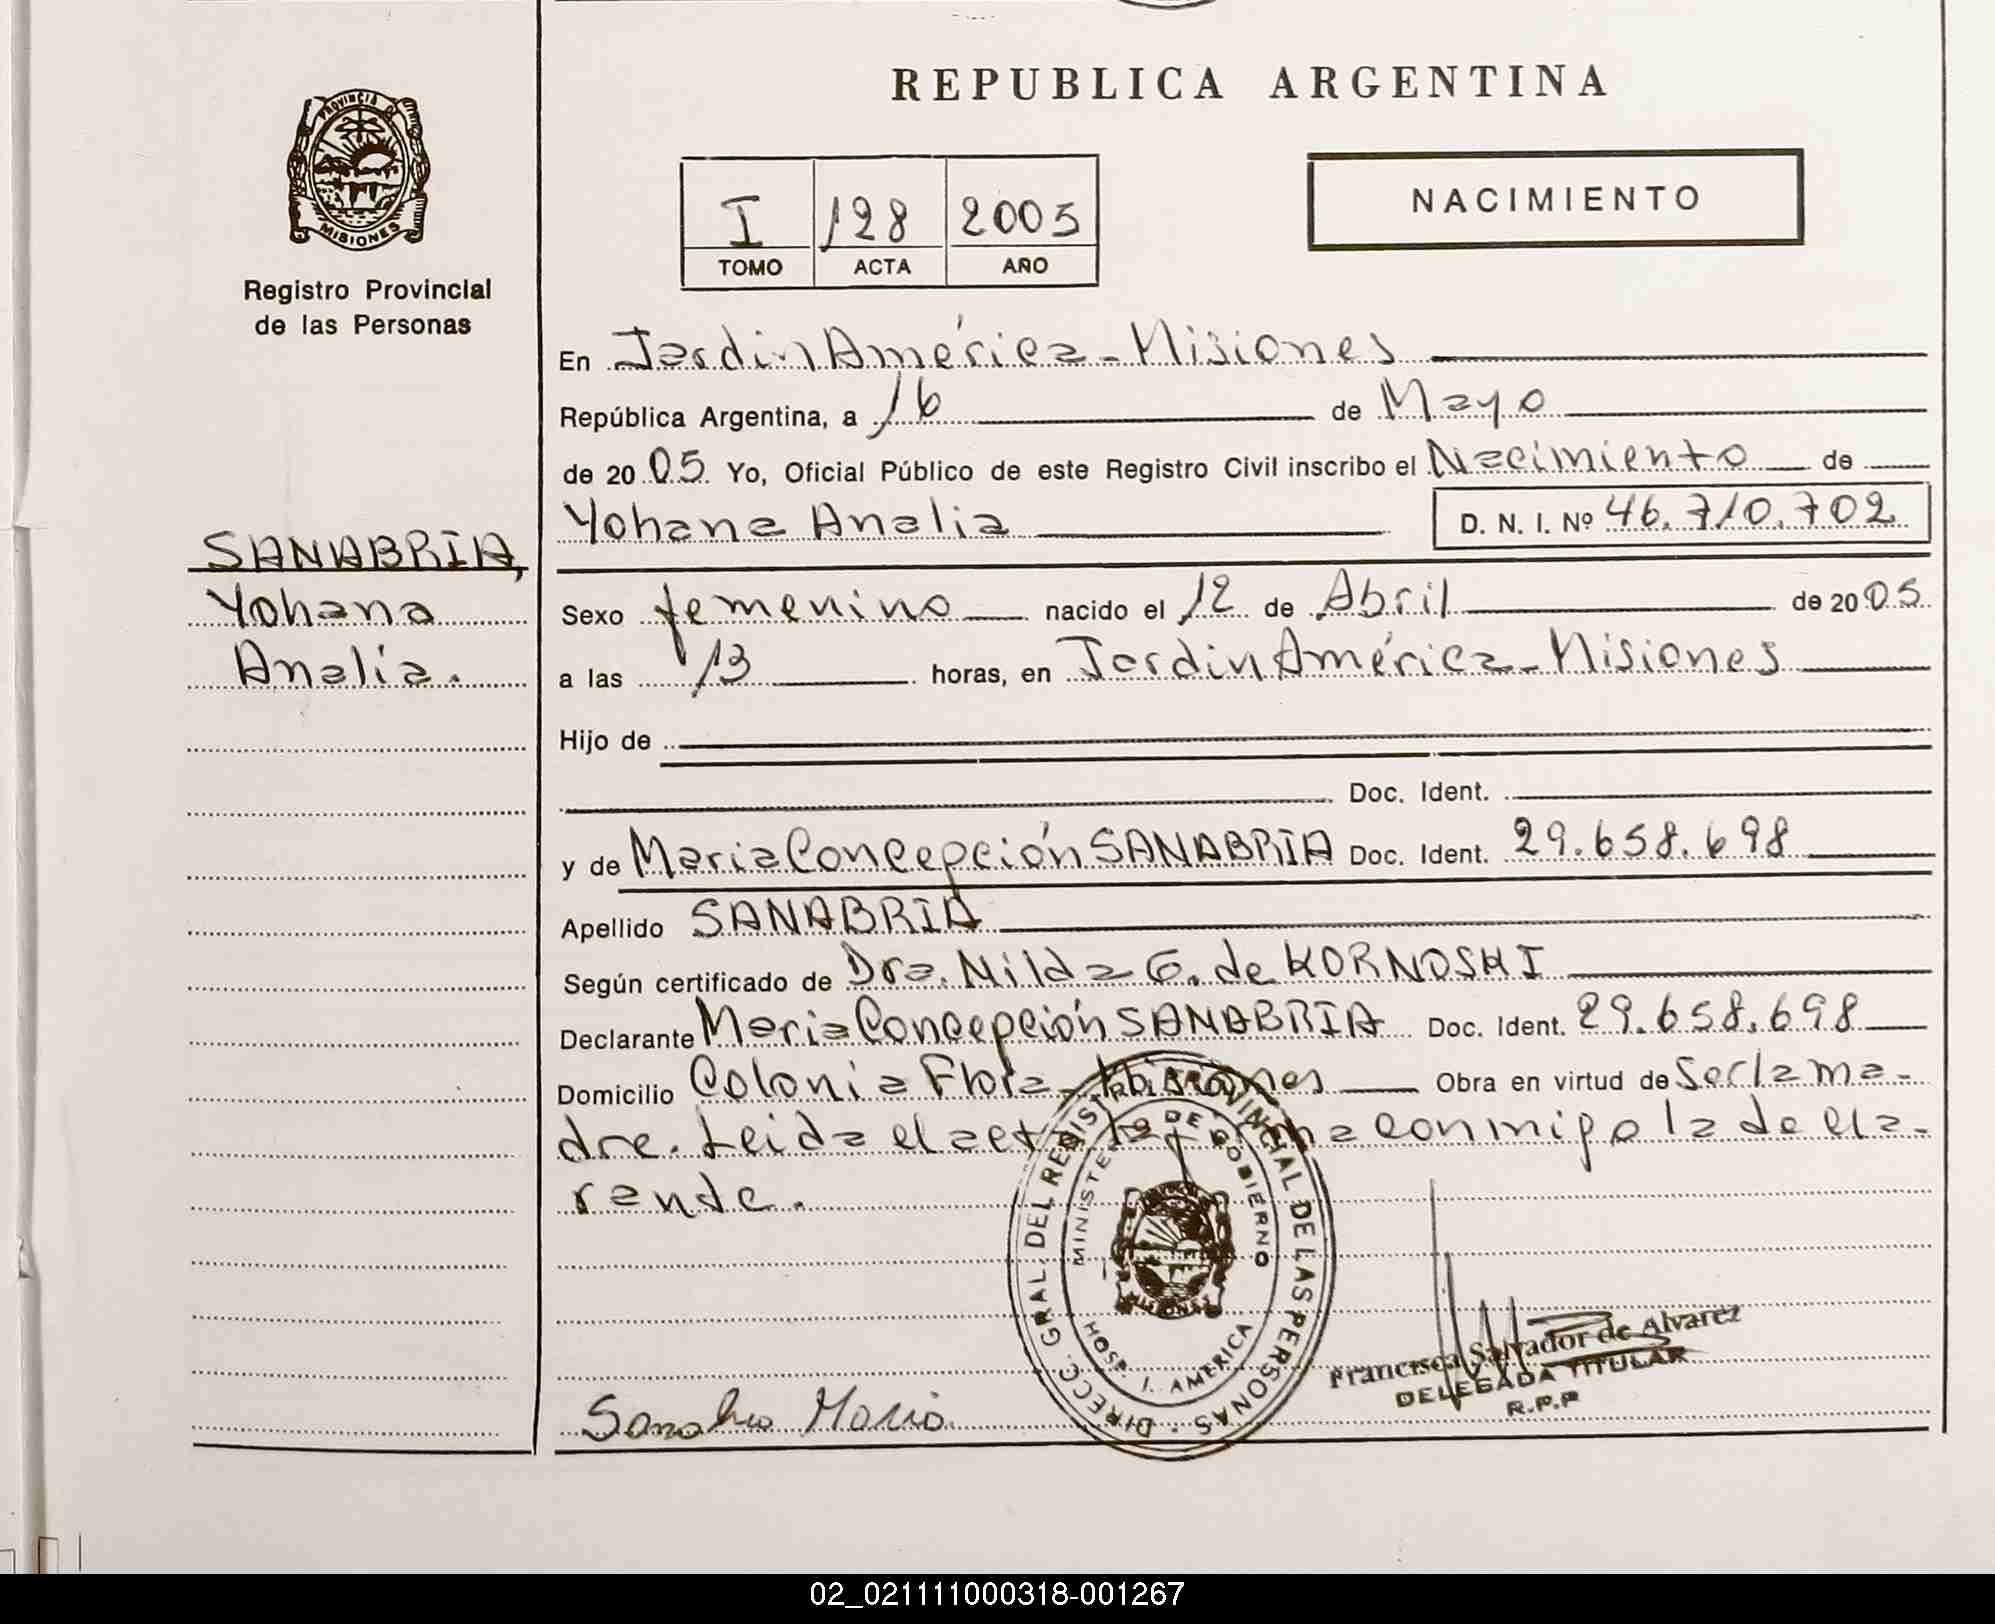 REPUBLICA ARGENTINA
PROVINCIA
MISIONES
Registro Provincial
de las Personas
I 128 2005
TOMO ACTA AÑO
NACIMIENTO
En Jardin América - Misiones
República Argentina, a 16 de Mayo
de 20 05. Yo, Oficial Público de este Registro Civil inscribo el Nacimiento de
Yohana Analia D. N. I. Nº 46.710.702
SANABRIA,
Yohana
Analía.
Sexo femenino nacido el 12 de Abril de 20 05
a las 13 horas, en Jardin América - Misiones
Hijo de
Doc. Ident.
y de Maria Concepción SANABRIA Doc. Ident. 29.658.698
Apellido SANABRIA
Según certificado de Dra. Nilda G. de KORNOSKI
Declarante Maria Concepción SANABRIA Doc. Ident. 29.658.698
Domicilio Colonia Flora - Misiones Obra en virtud de ser la ma-
dre. Leida el acta la conmigo la decla-
rante.
DIRECC. GRAL. DEL REGISTRO PROVINCIAL DE LAS PERSONAS
MINISTERIO DE GOBIERNO
MISIONES
HOSP. J. AMERICA
Francisca Salvador de Alvarez
DELEGADA TITULAR
R.P.P
Maria
02_021111000318-001267